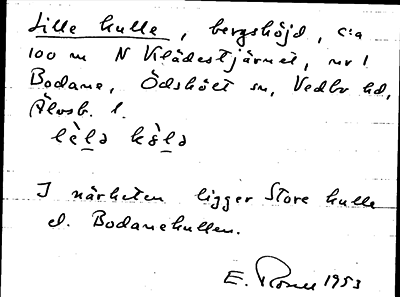 Lille kulle, bergshöjd, c:a
100 m N Klädestjärnet, nr 1
Bodane, Ödskölt sn, Vedbo hd,
Älvsb. l.
lèlə kələ
I närheten ligger Store kulle
el. Bodanekullen.
E. 1953